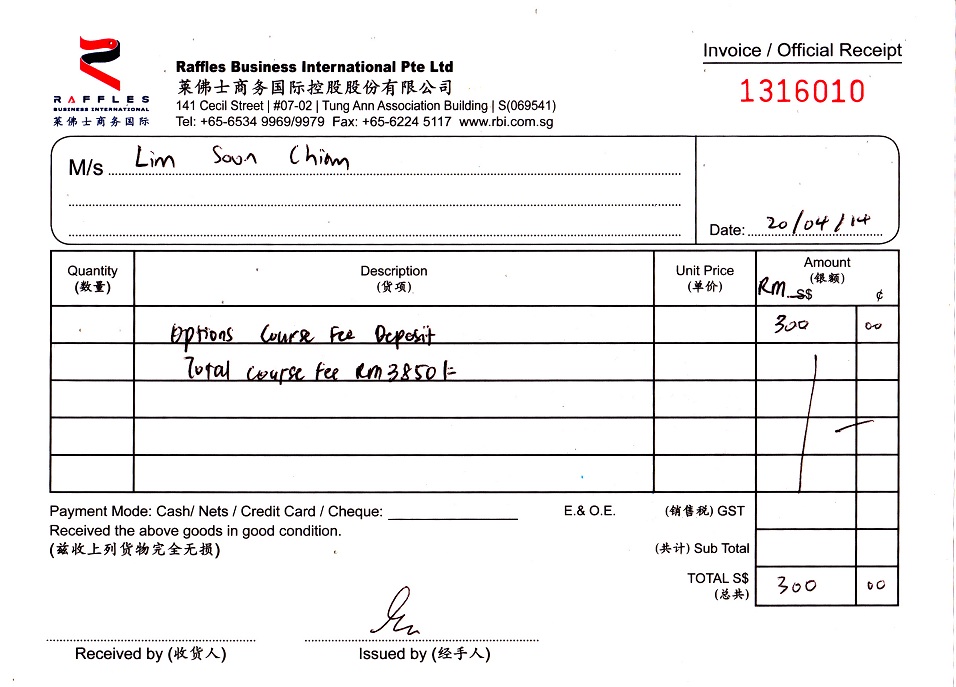 RAFFLES
BUSINESS INTERNATIONAL
莱佛士商务国际
Raffles Business International Pte Ltd
莱佛士商务国际控股股份有限公司
141 Cecil Street | #07-02 | Tung Ann Association Building | S(069541)
Tel: +65-6534 9969/9979 Fax: +65-6224 5117 www.rbi.com.sg
Invoice / Official Receipt
1316010
M/s Lim Soon Chiam
Date: 20/04/14
Quantity
(数量)
Description
(货项)
Unit Price
(单价)
Amount
(银额)
RM S$ ¢
Options Course Fee Deposit 300 00
Total Course Fee RM3850/=
Payment Mode: Cash/ Nets / Credit Card / Cheque:
E.& O.E.
(销售税) GST
Received the above goods in good condition.
(兹收上列货物完全无损)
(共计) Sub Total
TOTAL S$ 300 00
(总共)
Received by (收货人)
Issued by (经手人)